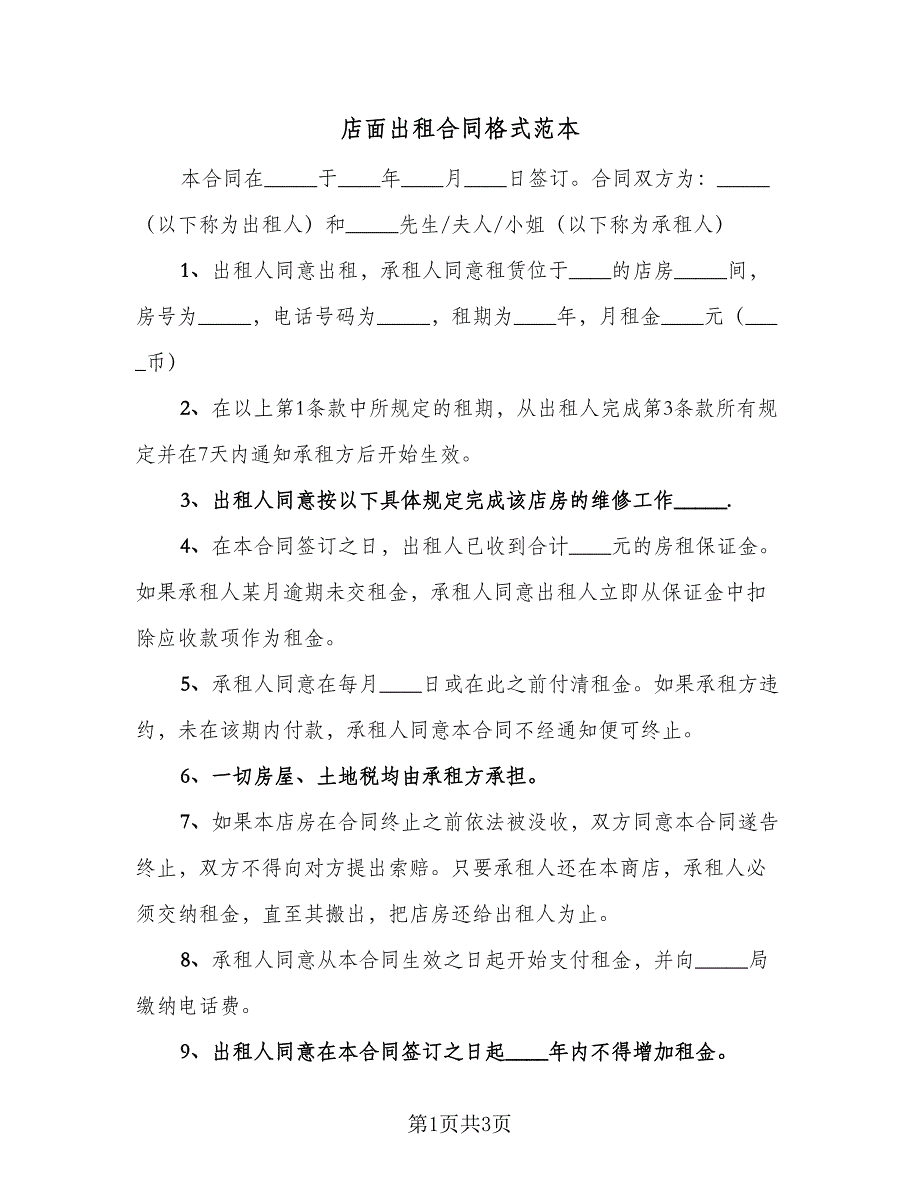 店面出租合同格式范本
本合同在_____于____年____月____日签订。合同双方为：_____
（以下称为出租人）和_____先生/夫人/小姐（以下称为承租人）
1、出租人同意出租，承租人同意租赁位于____的店房_____间，
房号为_____，电话号码为_____，租期为____年，月租金____元（___
_币）
2、在以上第1条款中所规定的租期，从出租人完成第3条款所有规
定并在7天内通知承租方后开始生效。
3、出租人同意按以下具体规定完成该店房的维修工作_____.
4、在本合同签订之日，出租人已收到合计____元的房租保证金。
如果承租人某月逾期未交租金，承租人同意出租人立即从保证金中扣
除应收款项作为租金。
5、承租人同意在每月____日或在此之前付清租金。如果承租方违
约，未在该期内付款，承租人同意本合同不经通知便可终止。
6、一切房屋、土地税均由承租方承担。
7、如果本店房在合同终止之前依法被没收，双方同意本合同遂告
终止，双方不得向对方提出索赔。只要承租人还在本商店，承租人必
须交纳租金，直至其搬出，把店房还给出租人为止。
8、承租人同意从本合同生效之日起开始支付租金，并向_____局
缴纳电话费。
9、出租人同意在本合同签订之日起____年内不得增加租金。
第1页共3页